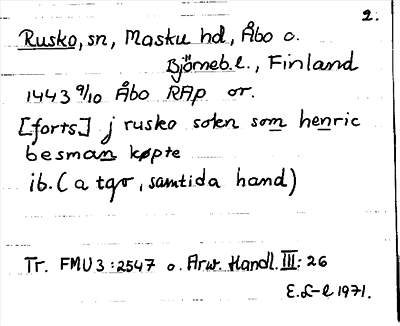 2.
Rusko, sn, Masku hd, Åbo o.
Björneb. l., Finland
1443 9/10 Åbo RAp or.
[forts] j rusko soken som henric
besman køpte
ib. (a tgo, samtida hand)
Tr. FMU 3:2547 o. Arw. Handl. III: 26
E. L-l 1971.